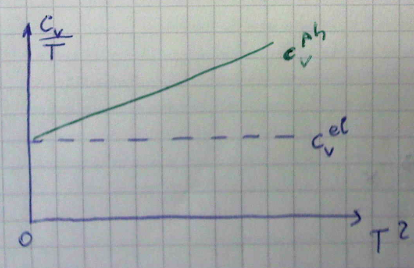 c_v/T
c_v^ph
c_v^el
0
T²